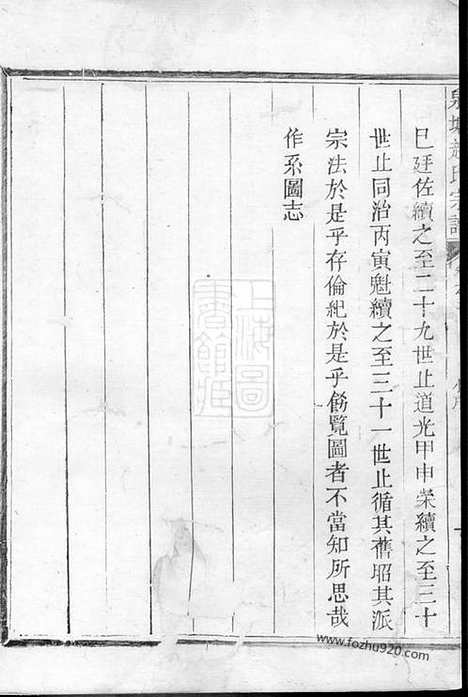 泉塘趙氏宗譜
巳廷佐續之至二十九世止道光甲申榮續之至三十
世止同治丙寅魁續之至三十一世止循其舊昭其派
宗法於是乎存倫紀於是乎飭覽圖者不當知所思哉
作系圖志
上海圖書館藏
www.fozhu920.com